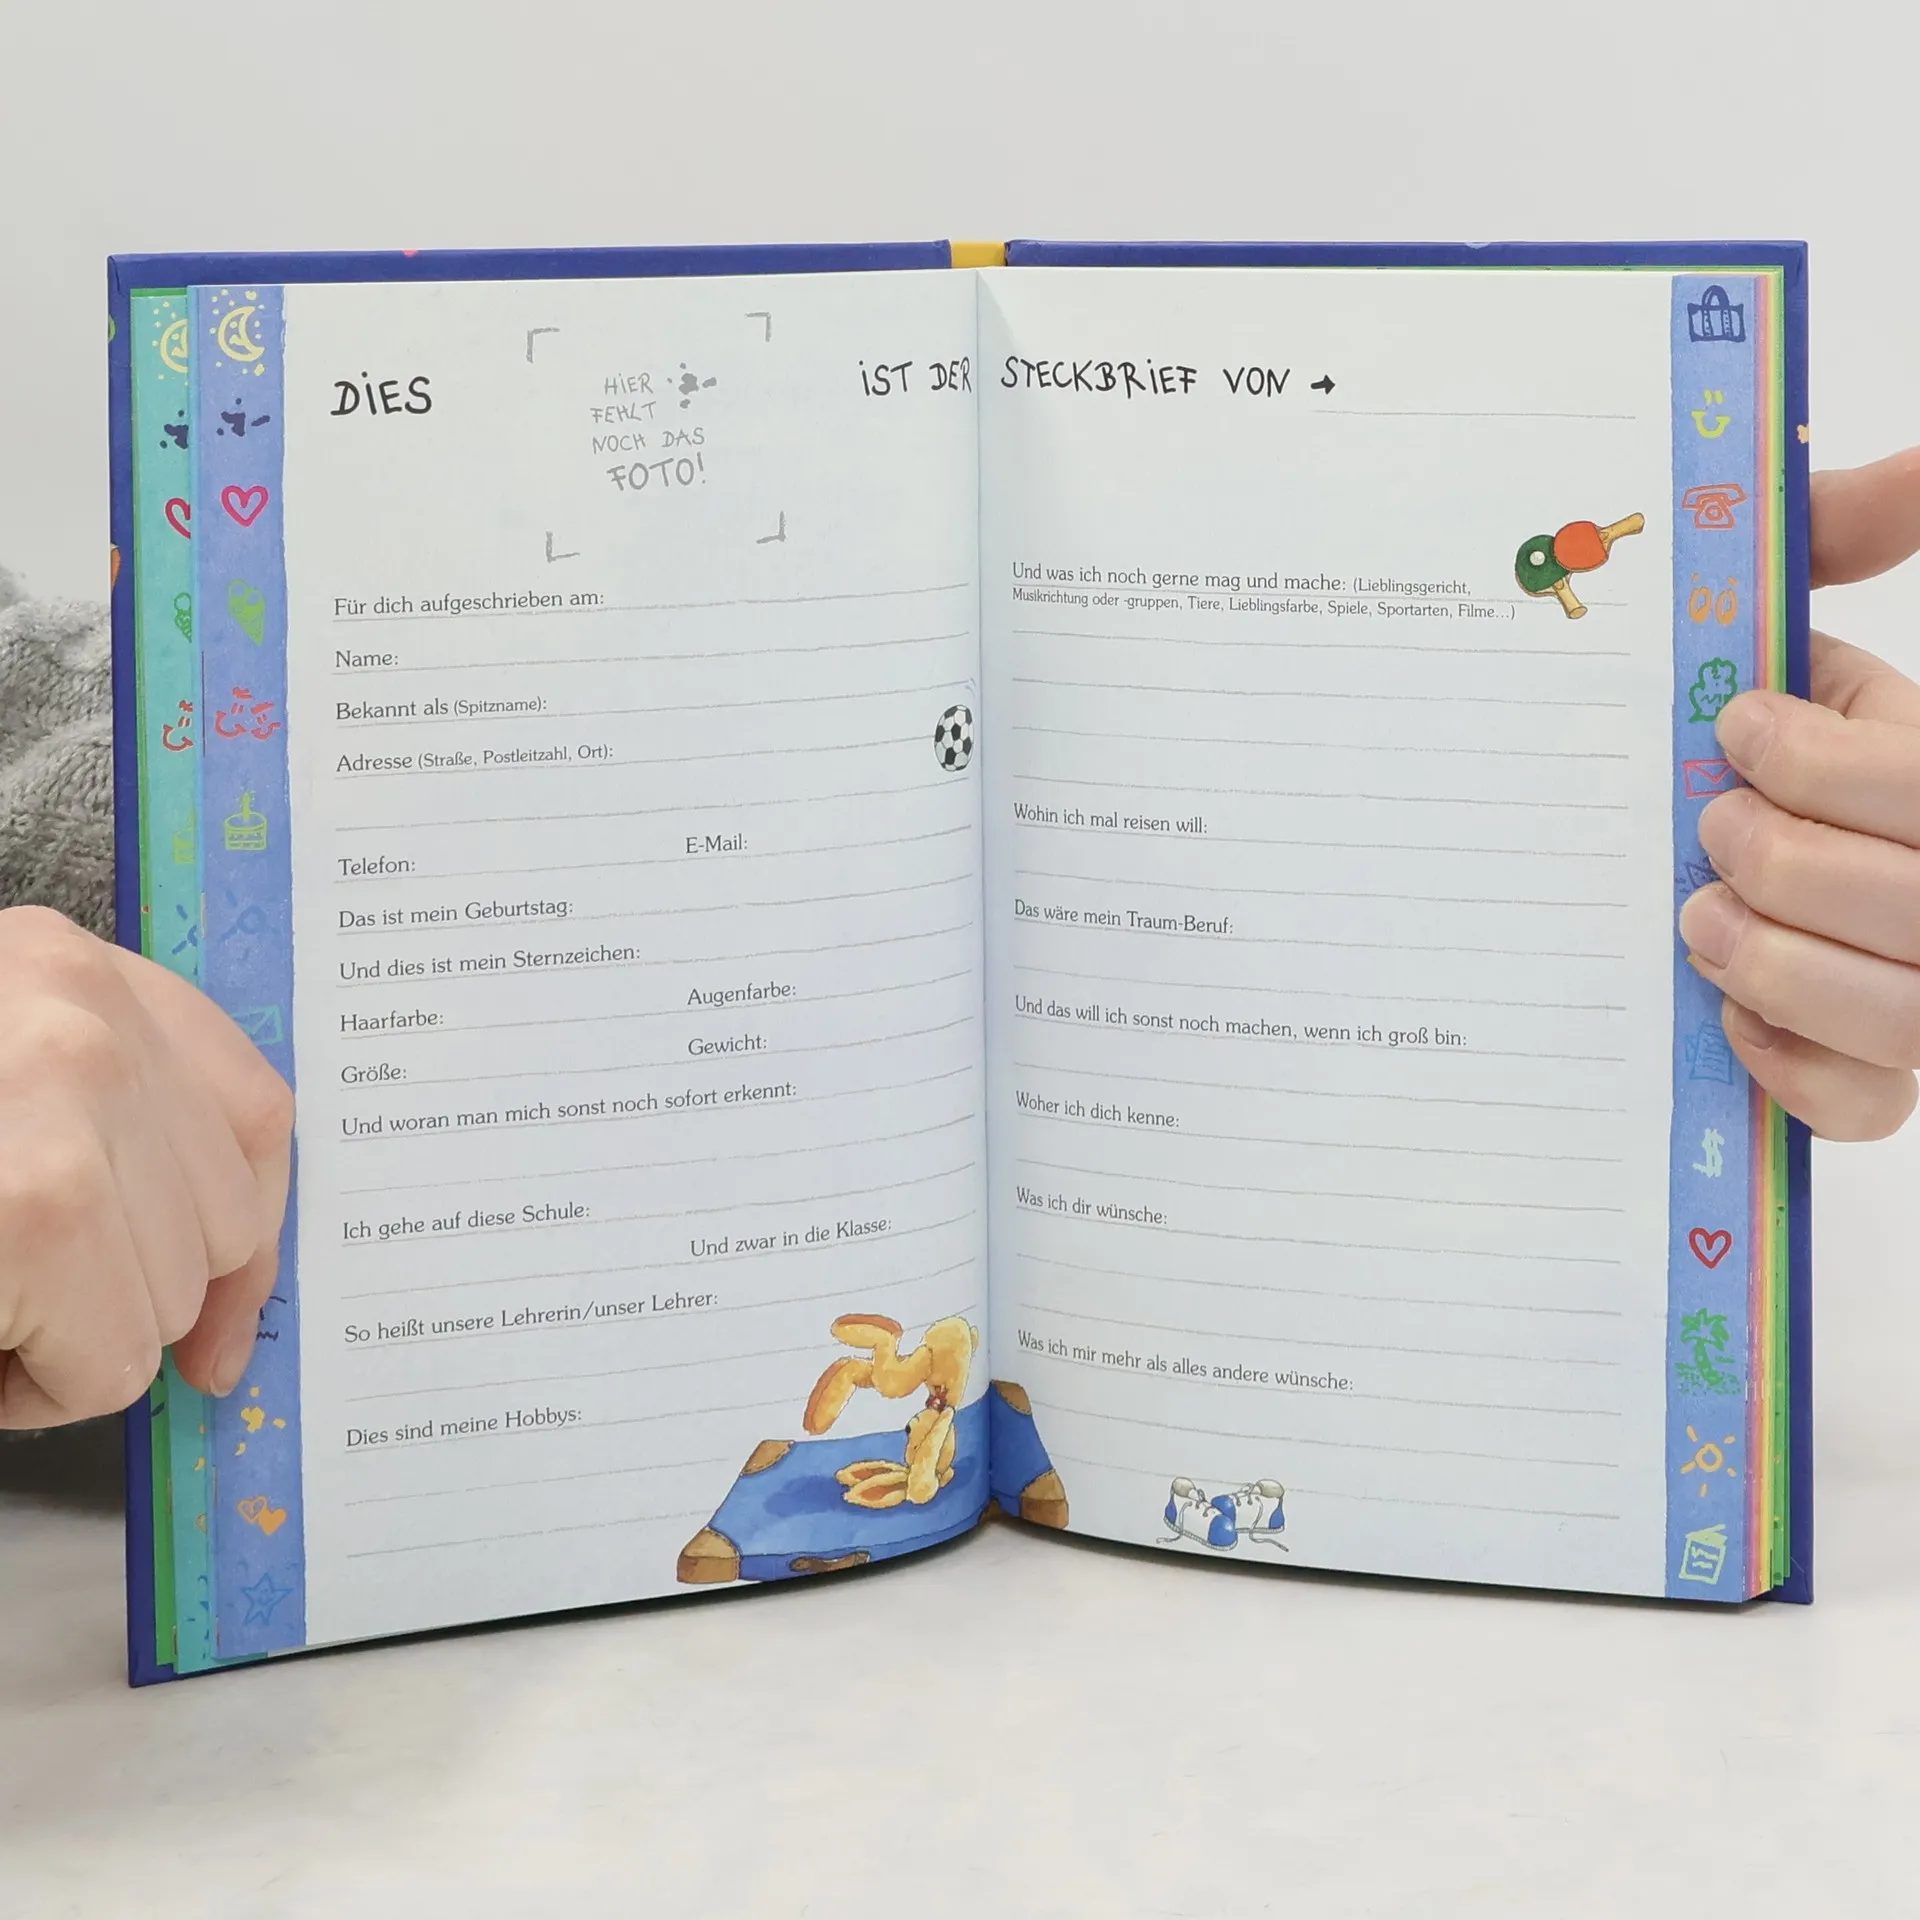 DIES
HIER
FEHLT
NOCH DAS
FOTO!
IST DER STECKBRIEF VON →
Für dich aufgeschrieben am:
Name:
Bekannt als (Spitzname):
Adresse (Straße, Postleitzahl, Ort):
Telefon: E-Mail:
Das ist mein Geburtstag:
Und dies ist mein Sternzeichen:
Haarfarbe: Augenfarbe:
Größe: Gewicht:
Und woran man mich sonst noch sofort erkennt:
Ich gehe auf diese Schule:
Und zwar in die Klasse:
So heißt unsere Lehrerin/unser Lehrer:
Dies sind meine Hobbys:
Und was ich noch gerne mag und mache: (Lieblingsgericht,
Musikrichtung oder -gruppen, Tiere, Lieblingsfarbe, Spiele, Sportarten, Filme...)
Wohin ich mal reisen will:
Das wäre mein Traum-Beruf:
Und das will ich sonst noch machen, wenn ich groß bin:
Woher ich dich kenne:
Was ich dir wünsche:
Was ich mir mehr als alles andere wünsche: